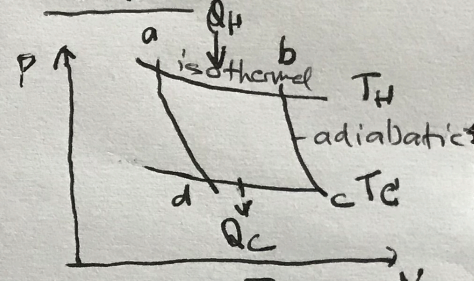 QH
a
b
P
isothermel
TH
adiabatic
d
c
TC
QC